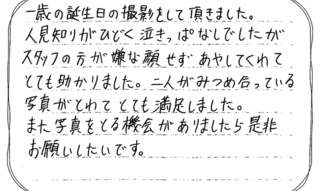 一歳の誕生日の撮影をして頂きました。
人見知りがひどく泣きっぱなしでしたが
スタッフの方が嫌な顔せずあやしてくれて
とても助かりました。二人がみつめ合っている
写真がとれてとても満足しました。
また写真をとる機会がありましたら是非
お願いしたいです。